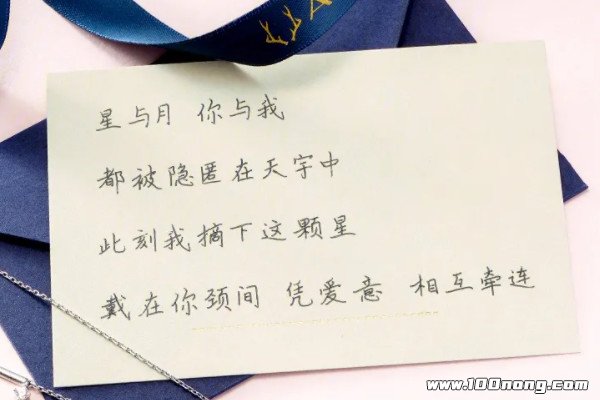 星与月 你与我
都被隐匿在天宇中
此刻我摘下这颗星
戴在你颈间 凭爱意 相互牵连
www.100nong.com